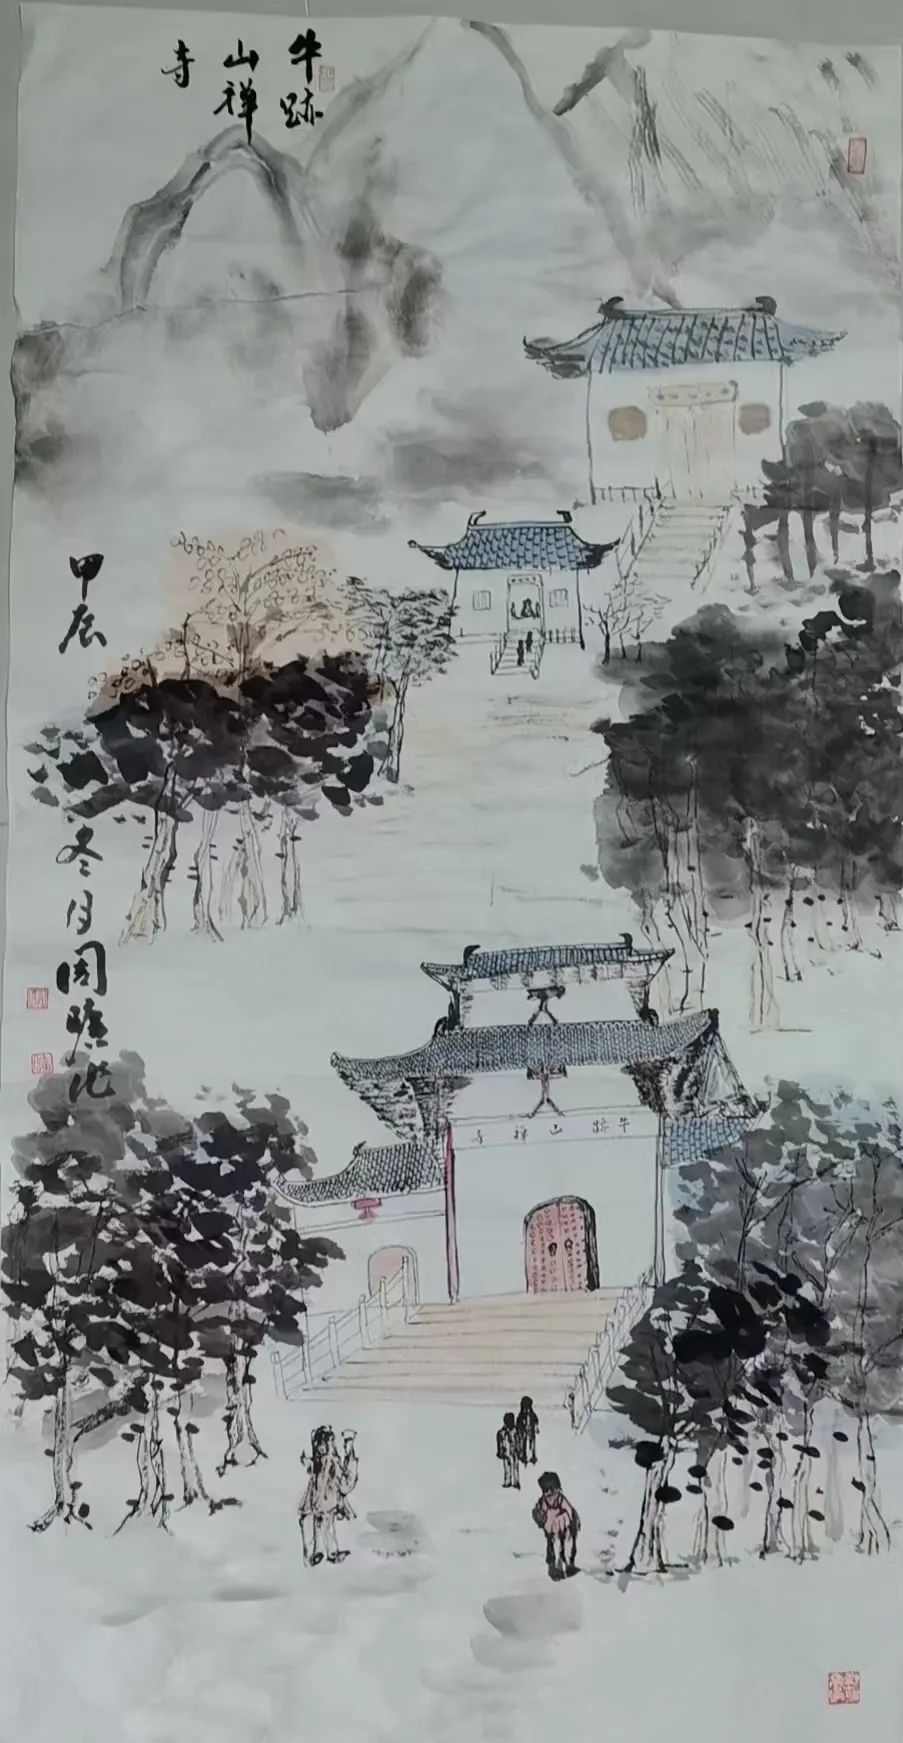 牛跡
山禅
寺
甲辰冬月周
牛跡山禅寺